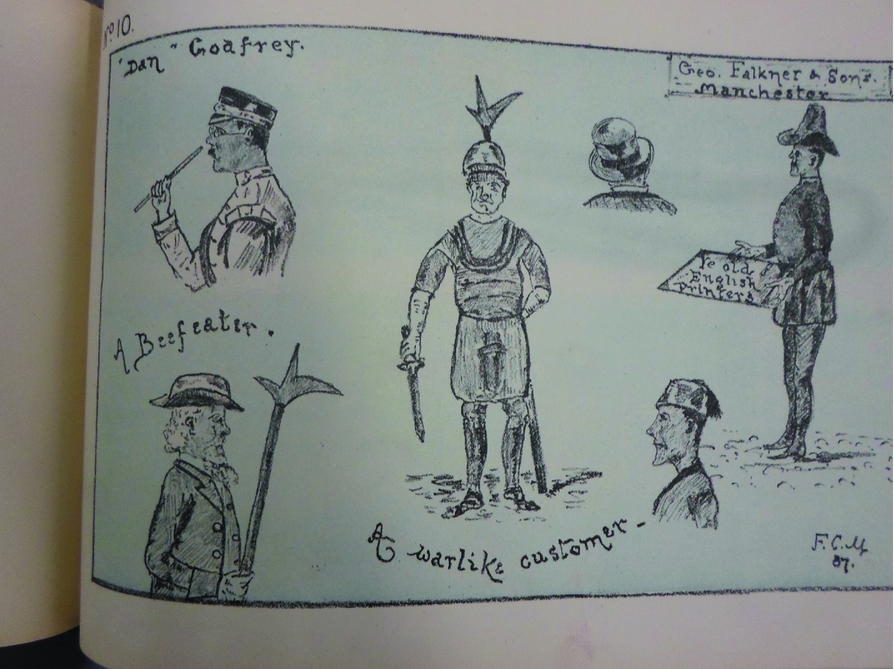 No 10.
"Dan" Goafrey.
Geo. Falkner & Sons.
Manchester
Ye old
English
printers
A Beefeater.
A warlike customer-
F.C.M
87.